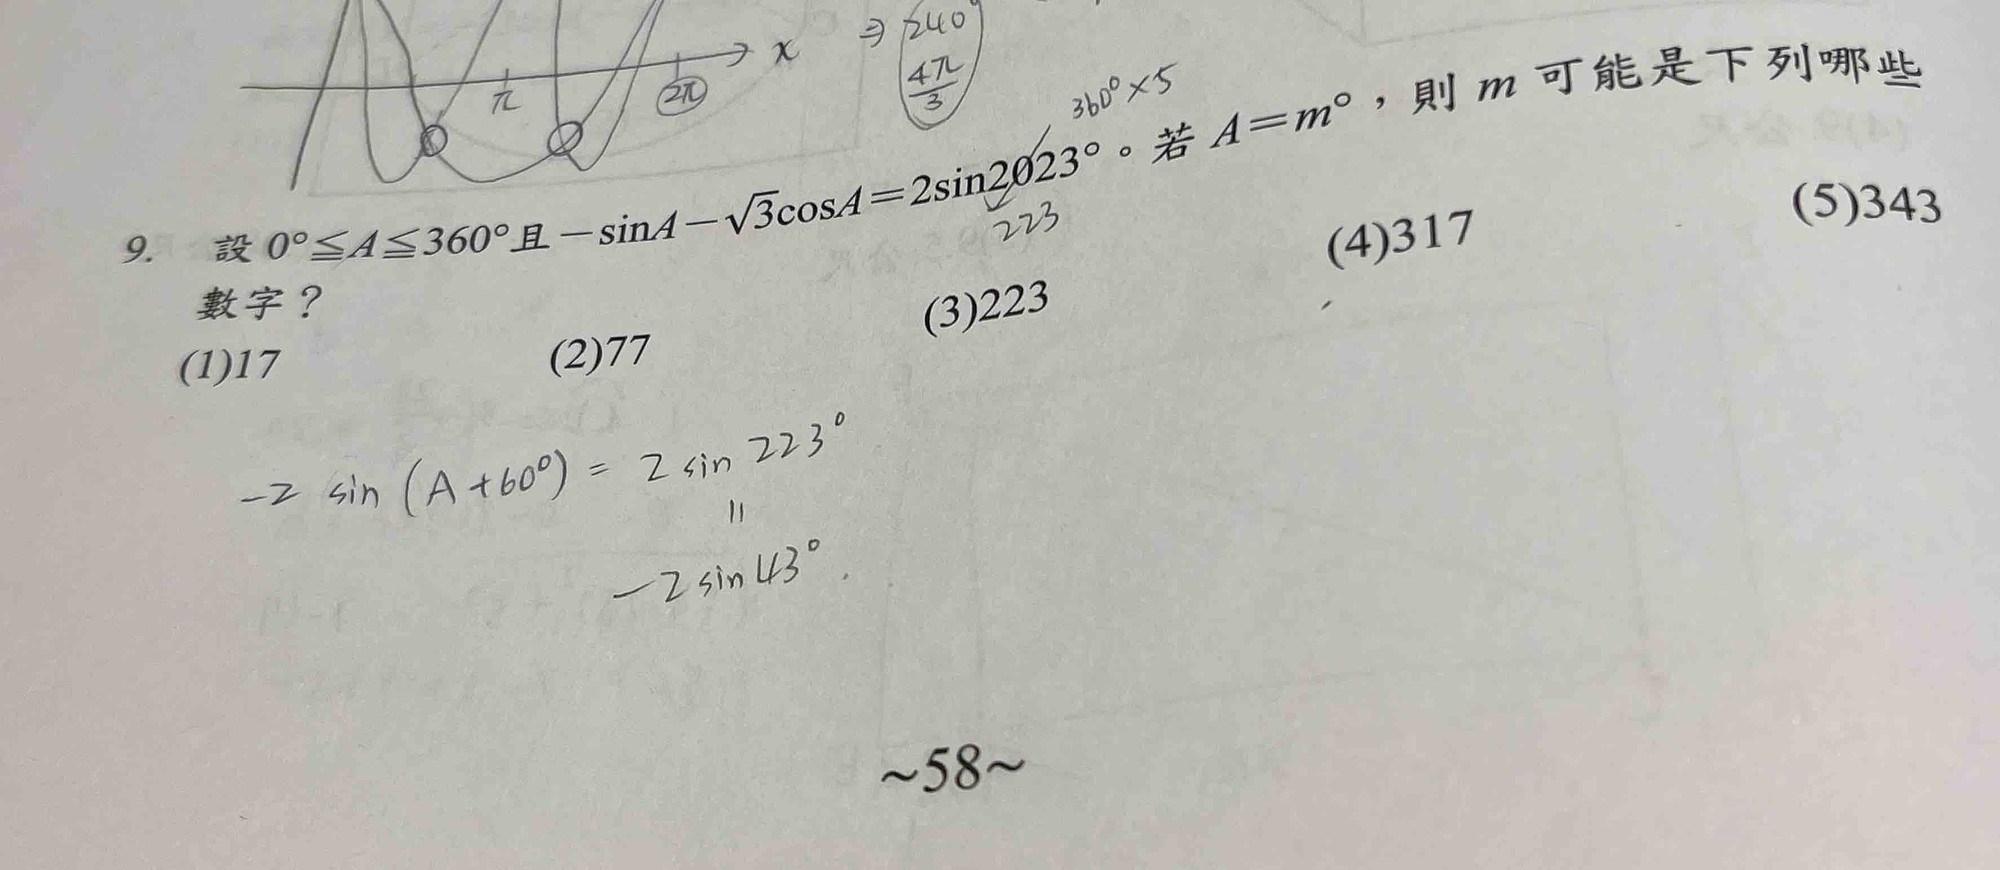 x
π
2π
⇒ 240°
4π/3
360°×5
9. 設 0°≦A≦360°且 −sinA−√3cosA=2sin2023°。若 A=m°,則 m 可能是下列哪些
223
數字?
(1)17 (2)77 (3)223 (4)317 (5)343
−2 sin (A+60°) = 2 sin 223°
=
−2 sin 43°.
~58~